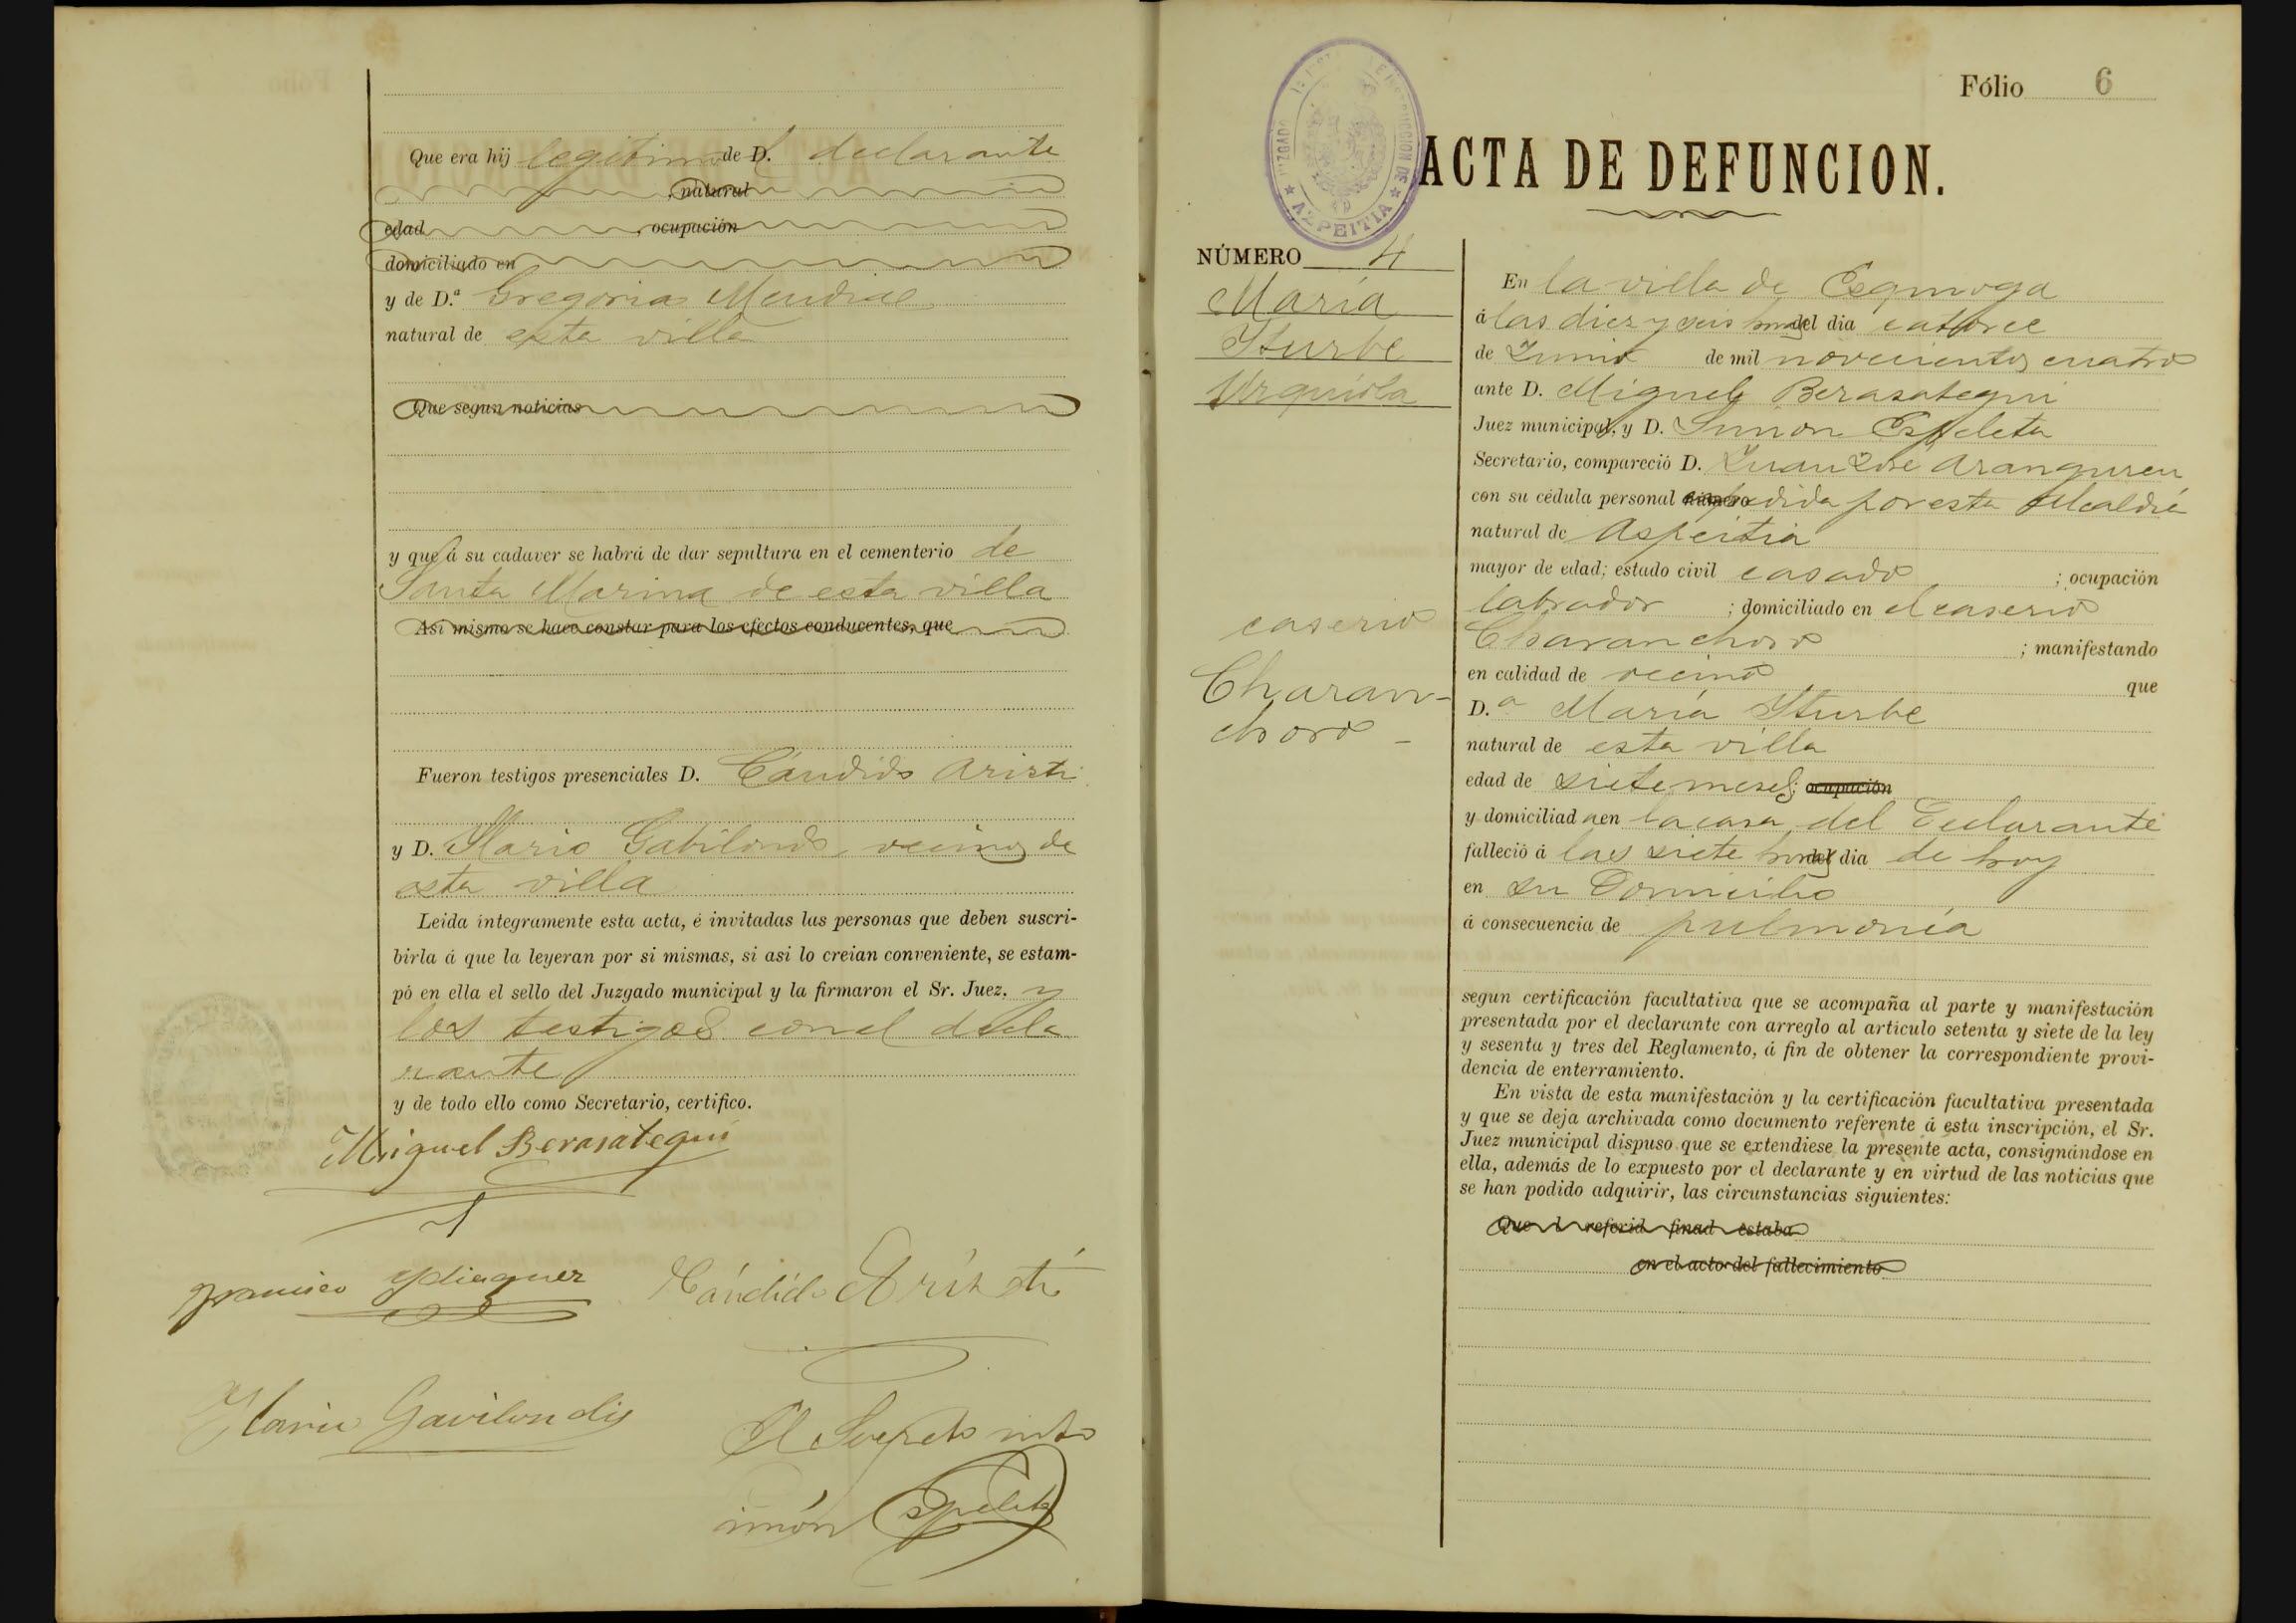 Que era hij legitima de D. l declarante
, natural
edad , ocupación
domiciliado en
y de D.ª Gregoria Mendia
natural de esta villa
Que segun noticias
y que á su cadaver se habrá de dar sepultura en el cementerio de
Santa Marina de esta villa
Asi mismo se hace constar para los efectos conducentes, que
Fueron testigos presenciales D. Cándido Aristi
y D. Ylario Gabilondo, vecinos de
esta villa
Leida íntegramente esta acta, é invitadas las personas que deben suscri-
birla á que la leyeran por si mismas, si asi lo creian conveniente, se estam-
pó en ella el sello del Juzgado municipal y la firmaron el Sr. Juez, y
los testigos con el decla
rante
y de todo ello como Secretario, certifico.
Miguel Berasategui
Francisco Ydiaquez Cándido Aristi
Ylario Gavilondo
El Secreto
imón Espeleta
Fólio 6
JUZGADO DE INSTRUCCION DE
★ AZPEITIA ★
ACTA DE DEFUNCION.
NÚMERO 4
María
Yturbe
Urquiola
caserio
Charan-
choro -
En la villa de Ezquioga
á las diez y seis horas del dia catorce
de Junio de mil novecientos cuatro
ante D. Miguel Berasategui
Juez municipal, y D. Simon Espeleta
Secretario, compareció D. Juan José Aranguren
con su cédula personal número expedida por esta Alcaldia
natural de Aspeitia
mayor de edad; estado civil casado ; ocupación
labrador ; domiciliado en el caserio
Charanchoro ; manifestando
en calidad de vecino que
D.ª María Yturbe
natural de esta villa
edad de siete meses; ocupación
y domiciliad a en la casa del Declarante
falleció á las siete horas del dia de hoy
en su Domicilio
á consecuencia de pulmonía
segun certificación facultativa que se acompaña al parte y manifestación
presentada por el declarante con arreglo al articulo setenta y siete de la ley
y sesenta y tres del Reglamento, á fin de obtener la correspondiente provi-
dencia de enterramiento.
En vista de esta manifestación y la certificación facultativa presentada
y que se deja archivada como documento referente á esta inscripción, el Sr.
Juez municipal dispuso que se extendiese la presente acta, consignándose en
ella, además de lo expuesto por el declarante y en virtud de las noticias que
se han podido adquirir, las circunstancias siguientes:
Que l referid finad estaba
en el acto del fallecimiento